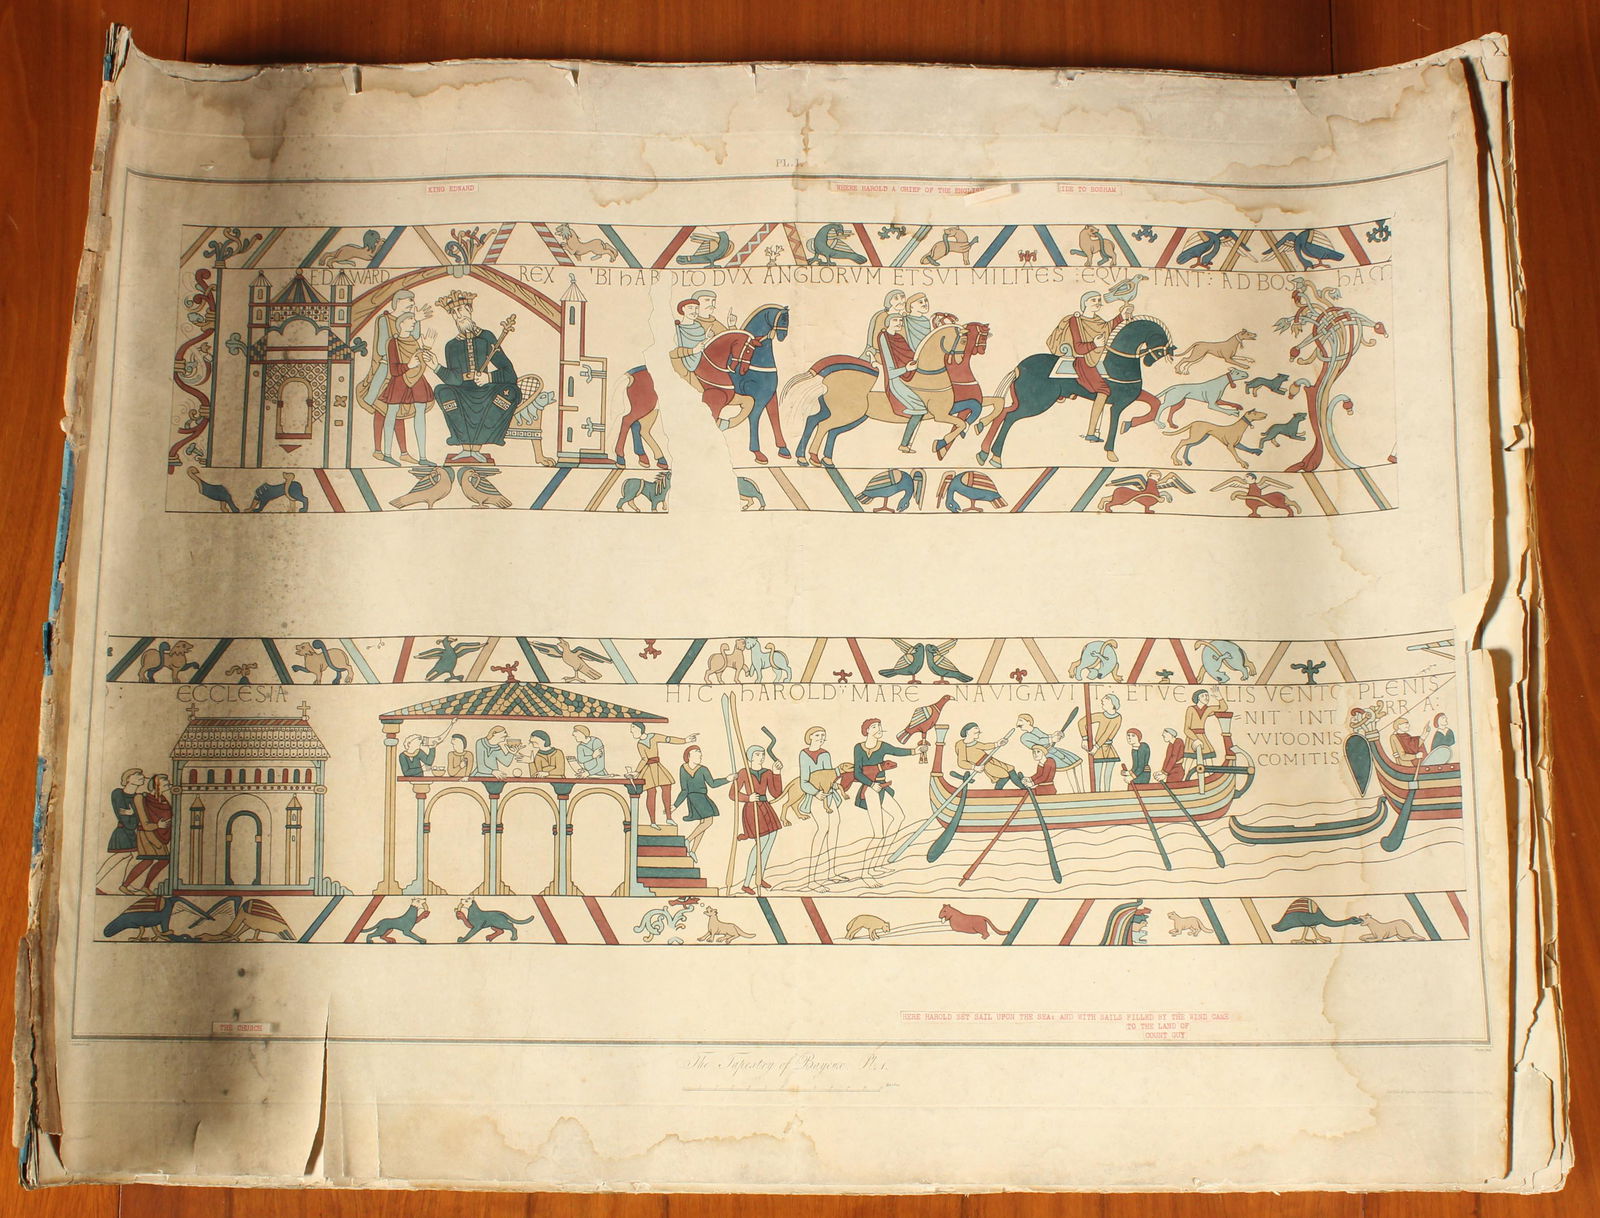 PL.I.
KING EDWARD
WHERE HAROLD A CHIEF OF THE ENGLISH
IDE TO BOSHAM
EDWARD REX : VBI hAROLD DVX ANGLORVM ET SVI MILITES : EQVI TANT : AD BOS hAM
: ECCLESIA hIC hAROLD : MARE NAVIGAVIT : ET VE LIS VENTO PLENIS
NIT INT RR A:
VVIDONIS
COMITIS
THE CHURCH
HERE HAROLD SET SAIL UPON THE SEA: AND WITH SAILS FILLED BY THE WIND CAME
TO THE LAND OF
COUNT GUY
The Tapestry of Bayeux Pl. 1.